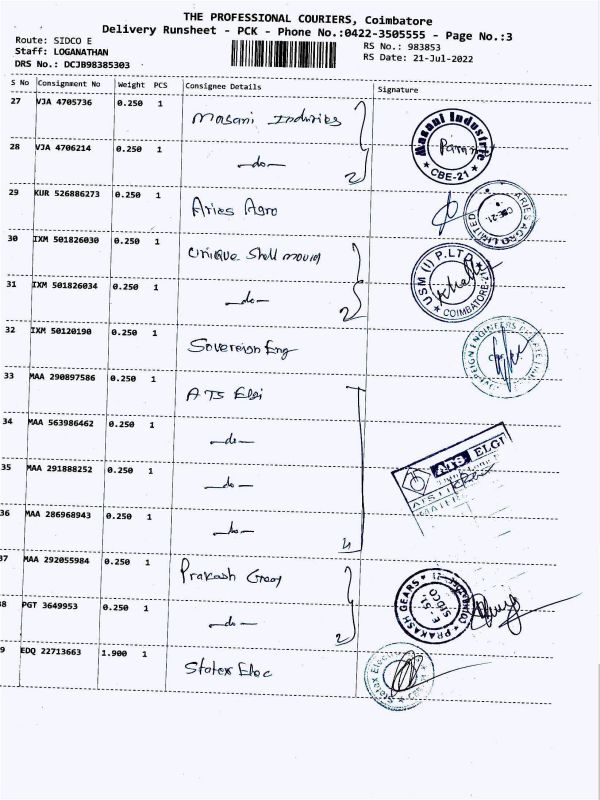 THE PROFESSIONAL COURIERS, Coimbatore
Delivery Runsheet - PCK - Phone No.:0422-3505555 - Page No.:3
Route: SIDCO E
RS No.: 983853
Staff: LOGANATHAN
RS Date: 21-Jul-2022
DRS No.: DCJB98385303
S No Consignment No Weight PCS Consignee Details Signature
27 VJA 4705736 0.250 1 Masani Industries
28 VJA 4706214 0.250 1 -do- 2
Masani Industrie
★ CBE-21 ★
29 KUR 526886273 0.250 1 Aries Agro
ARIES AGRO LIMITED
CBE-21.
30 IXM 501826030 0.250 1 Unique Shell mould
31 IXM 501826034 0.250 1 -do- 2
USM (I) P.LTD
COIMBATORE-21
32 IXM 50120190 0.250 1 Sovereign Eng
33 MAA 290897586 0.250 1 ATS Elgi
34 MAA 563986462 0.250 1 -do-
35 MAA 291888252 0.250 1 -do-
36 MAA 286968943 0.250 1 -do- 4
ATS ELGI
37 MAA 292055984 0.250 1 Prakash Gear
38 PGT 3649953 0.250 1 -do- 2
PRAKASH GEARS
E-51,
SIDCO
39 EDQ 22713663 1.900 1 Statex Elec
Statex Elec